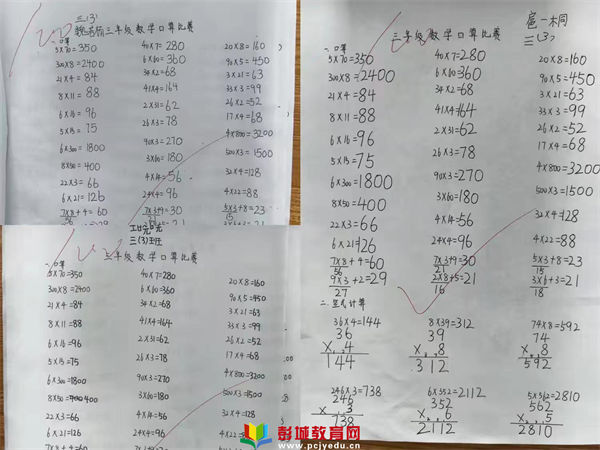 三(3)
三年级数学口算比赛
一、口算
5×70=350 40×7=280 20×8=160
300×8=2400 6×60=360 90×5=450
21×4=84 34×2=68 3×21=63
8×11=88 41×4=164 33×3=99
6×16=96 2×31=62 26×2=52
5×15=75 26×3=78 17×4=68
6×300=1800 90×3=270 4×800=3200
8×50=400 3×60=180 500×3=1500
22×3=66 4×14=56 32×4=128
6×21=126 24×4=96 4×22=88
7×8+4=60 7×3+9=30 5×3+8=23
56 21 15
三(3)
三年级数学口算比赛
一、口算
5×70=350 40×7=280 20×8=160
300×8=2400 6×60=360 90×5=450
21×4=84 34×2=68 3×21=63
8×11=88 41×4=164 33×3=99
6×16=96 2×31=62 26×2=52
5×15=75 26×3=78 17×4=68
6×300=1800 90×3=270 4×800=3200
8×50=400 3×60=180 500×3=1500
22×3=66 4×14=56 32×4=128
6×21=126 24×4=96 4×22=88
7×8+4=60 7×3+9=30 5×3+8=23
56 21 15
9×3+2=29 2×8+5=21 3×6+3=21
27 16 18
二、竖式计算
36×4=144 8×39=312 74×8=592
36 39 74
×4 ×8 ×8
144 312 592
246×3=738 6×352=2112 5×562=2810
246 352 562
×3 ×6 ×5
738 2112 2810
三(3)班
三年级数学口算比赛
一、口算
5×70=350 40×7=280 20×8=160
300×8=2400 6×60=360 90×5=450
21×4=84 34×2=68 3×21=63
8×11=88 41×4=164 33×3=99
6×16=96 2×31=62 26×2=52
5×15=75 26×3=78 17×4=68
6×300=1800 90×3=270 4×800=3200
8×50=400 3×60=180 500×3=1500
22×3=66 4×14=56 32×4=128
6×21=126 24×4=96 4×22=88
彭城教育网
www.pcjyedu.cn